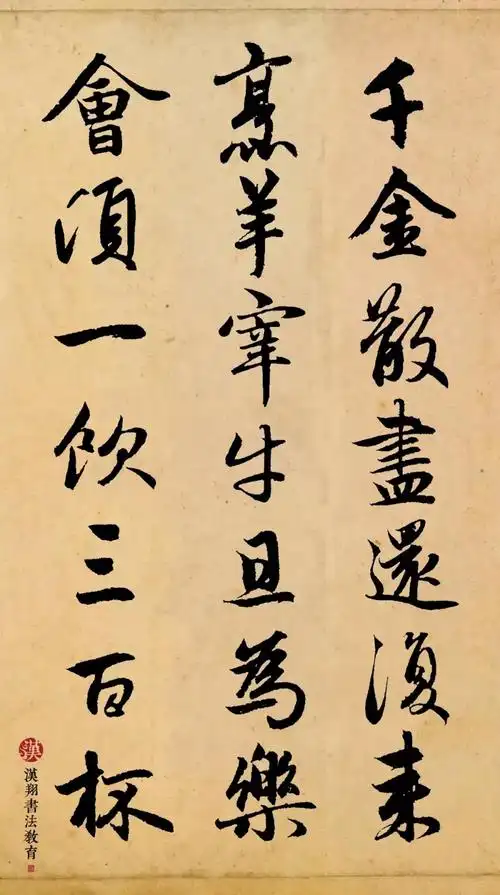 千金散盡還復来
烹羊宰牛且為樂
會須一飲三百杯
漢
漢翔書法教育